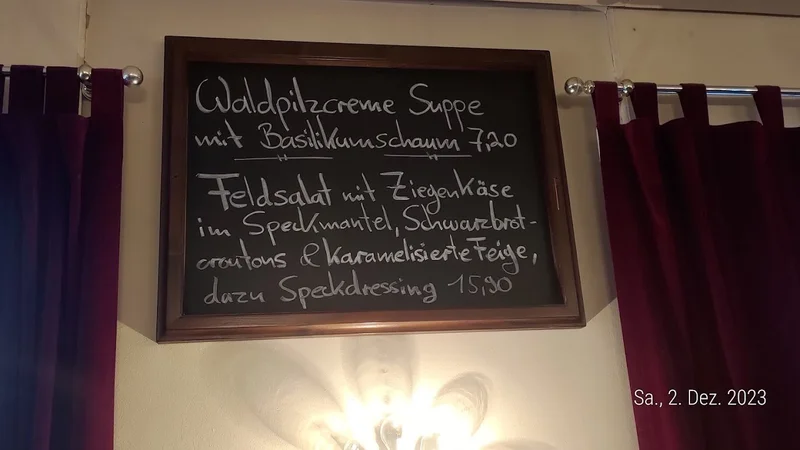 Waldpilzcreme Suppe
mit Basilikumschaum 7,20
Feldsalat mit Ziegenkäse
im Speckmantel, Schwarzbrot-
croutons & karamelisierte Feige,
dazu Speckdressing 15,90
Sa., 2. Dez. 2023